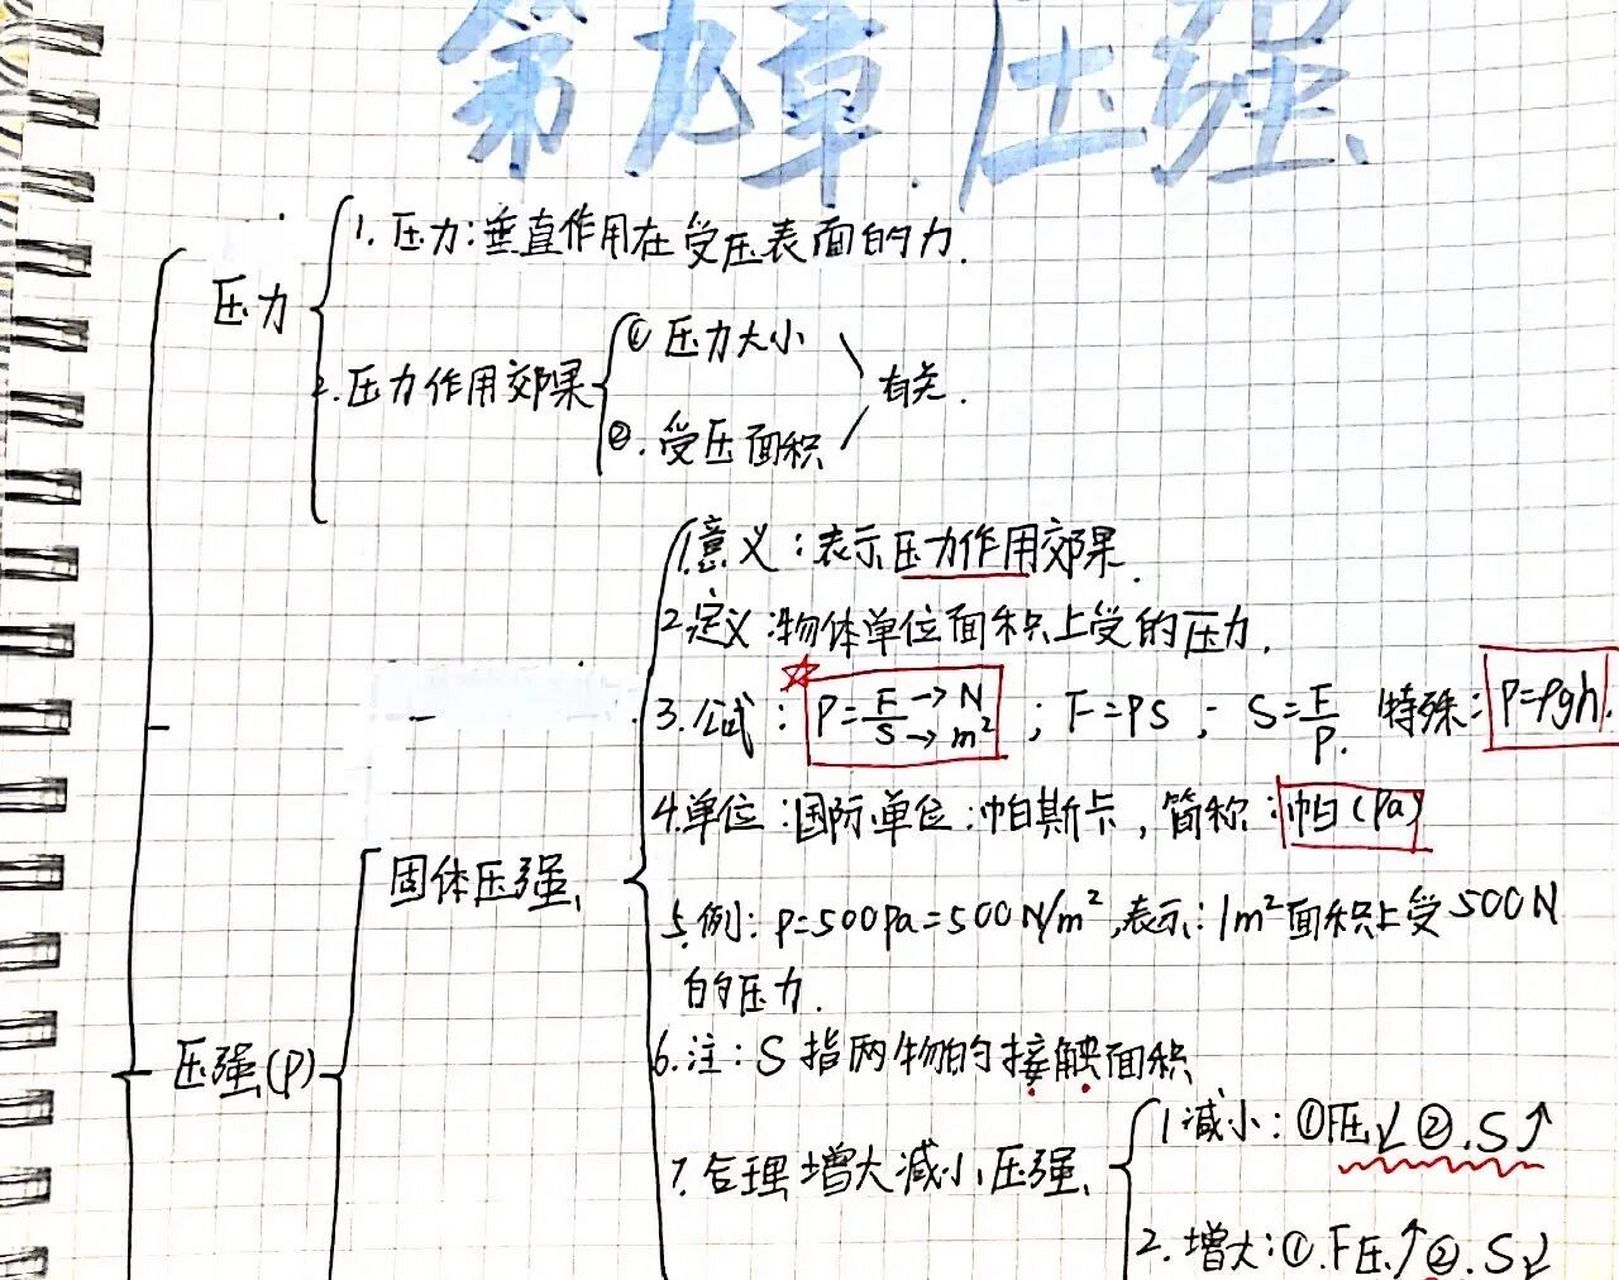 第九章 压强
1. 压力：垂直作用在受压表面的力.
压力
① 压力大小
2. 压力作用效果 有关.
②. 受压面积
1.意义：表示压力作用效果.
2.定义：物体单位面积上受的压力.
3.公式：P=F/S →N →m² ; F=PS ; S=F/P. 特殊：P=ρgh.
4.单位：国际单位：帕斯卡，简称：帕(Pa)
固体压强
5.例：P=500Pa=500N/m²,表示：1m²面积上受500N
的压力.
6.注：S指两物的接触面积
压强(P)
1减小：①F压↓②.S↑
7.合理增大减小压强
2.增大：①.F压↑②.S↓